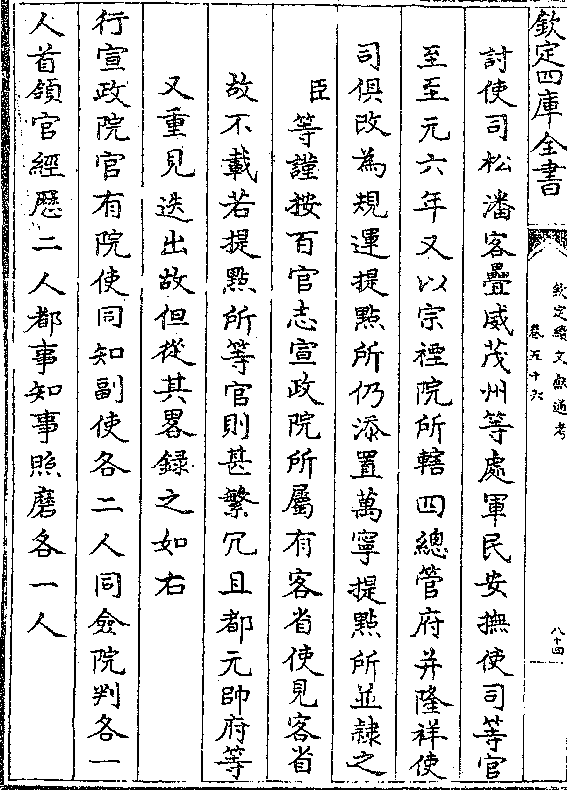 欽定四庫全書
欽定續文獻通考
卷五十六
八十四
討使司松潘客疊威茂州等處軍民安撫使司等官
至至元六年又以宗禋院所轄四總管府并隆祥使
司俱改為規運提㸃所仍添置萬寧提㸃所並隸之
臣等謹按百官志宣政院所屬有客省使見客省
故不載若提㸃所等官則甚繁冗且都元帥府等
又重見迭出故但從其畧録之如右
行宣政院官有院使同知副使各二人同僉院判各一
人首領官經歷二人都事知事照磨各一人